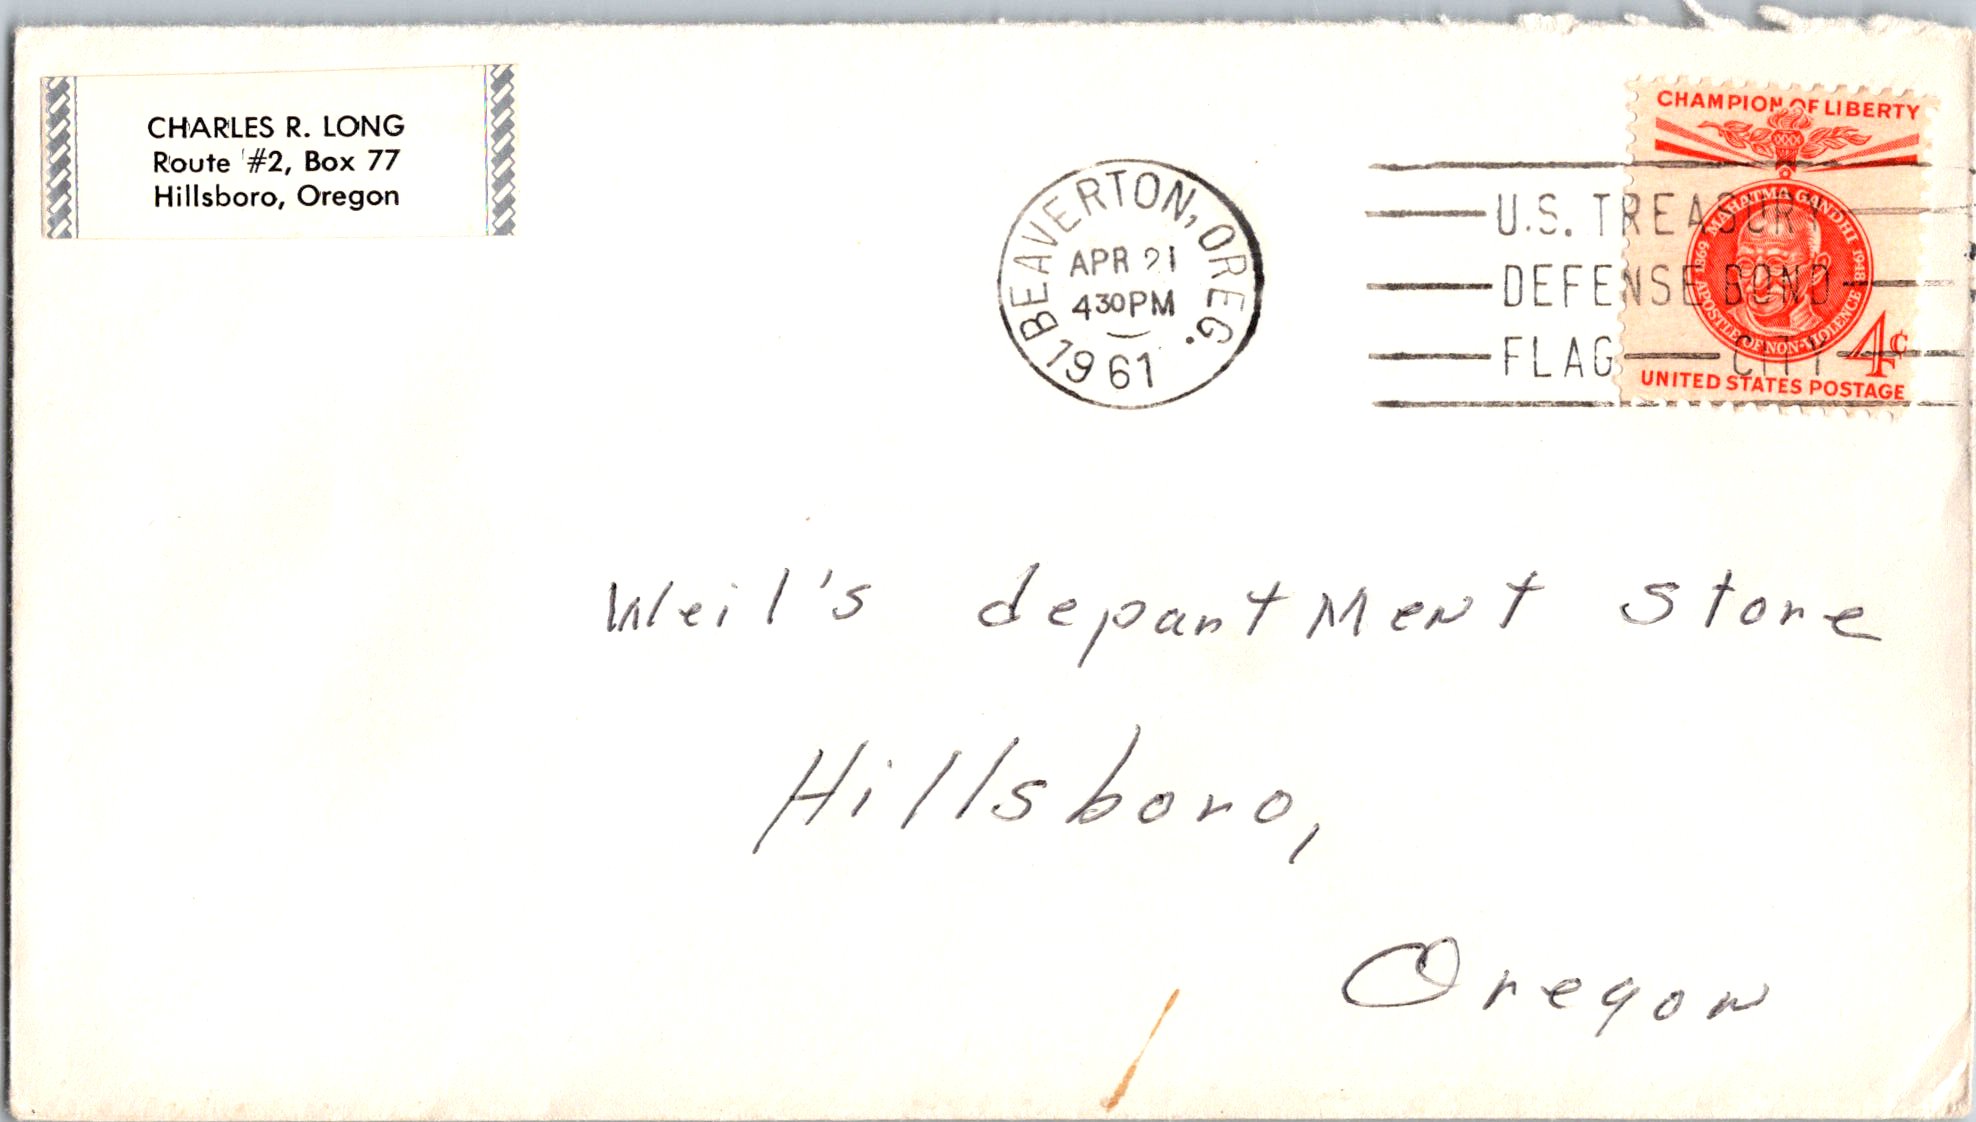 CHARLES R. LONG
Route #2, Box 77
Hillsboro, Oregon
BEAVERTON, OREG.
APR 21
430PM
1961
U.S. TREASURY
DEFENSE BOND
FLAG CITY
CHAMPION OF LIBERTY
MAHATMA GANDHI
1869 1948
APOSTLE OF NON-VIOLENCE
4¢
UNITED STATES POSTAGE
Weil's department store
Hillsboro,
Oregon